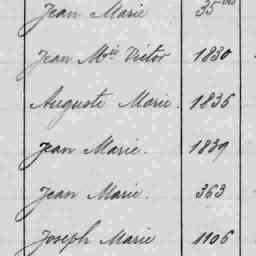 Jean Marie 35 bis
Jean Mie Victor 1830
Auguste Marie. 1836
Jean Marie. 1839
Jean Marie. 363
Joseph Marie 1106